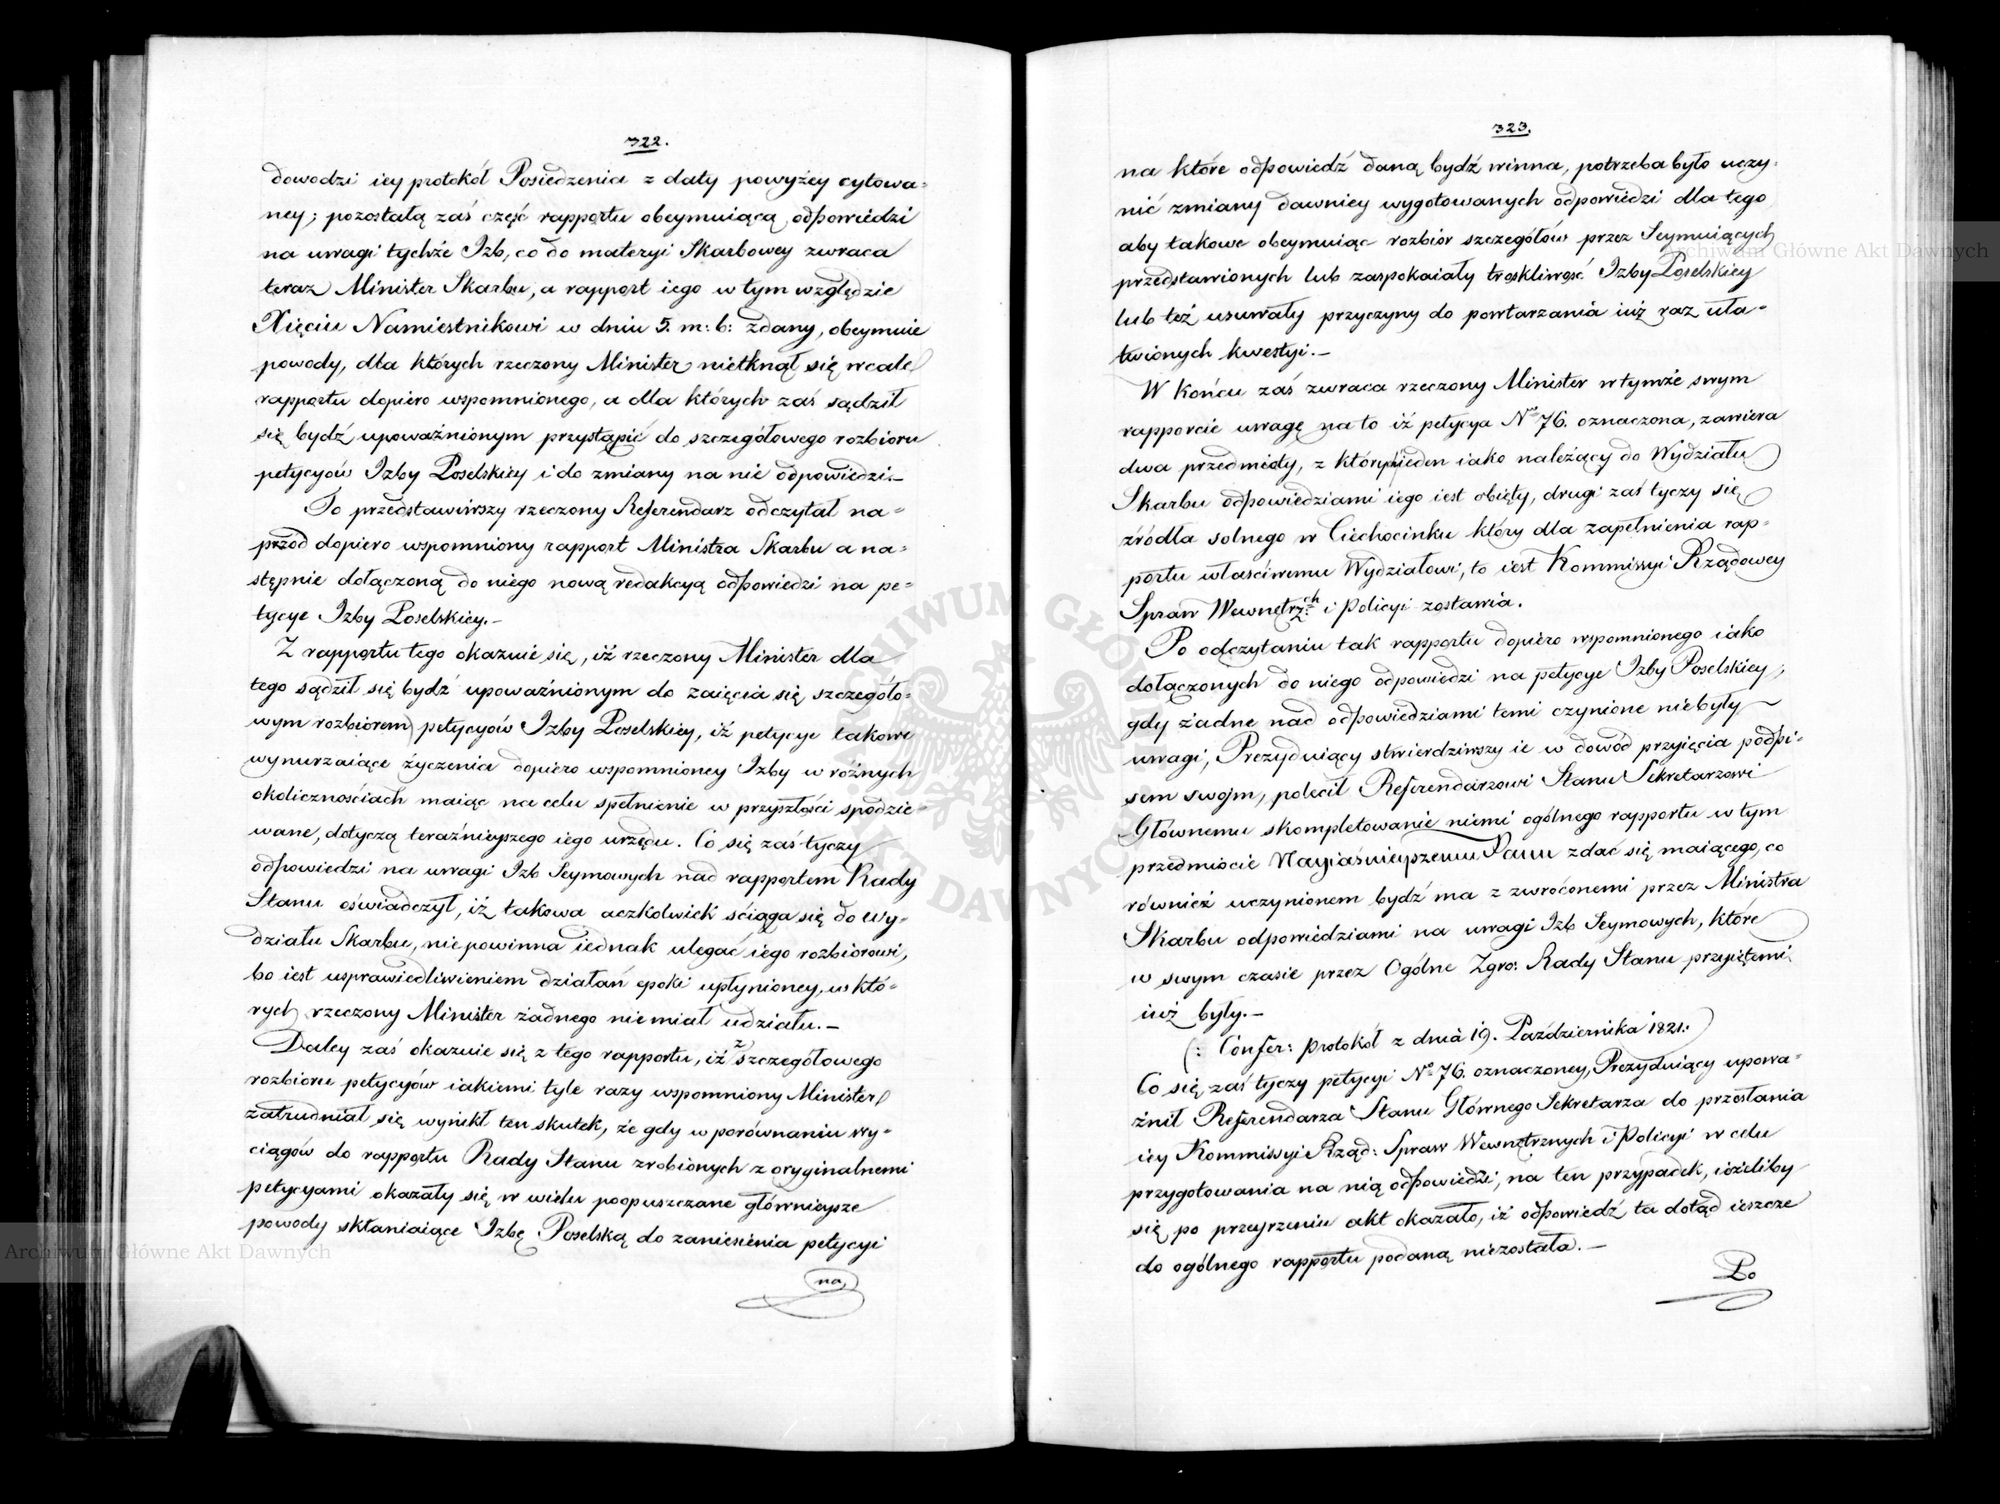 322.
dowodzi iey protokół Posiedzenia z daty powyżey cytowa-
ney; pozostałą zaś część rapportu obeymuiącą odpowiedzi
na uwagi tychże Izb, co do materyi Skarbowey zwraca
teraz Minister Skarbu, a rapport iego w tym względzie
Xięciu Namiestnikowi w dniu 5. m: b: zdany, obeymuie
powody, dla których rzeczony Minister nietknął się wcale
rapportu dopiero wspomnionego, a dla których zaś sądził
się bydź upoważnionym przystąpić do szczegółowego rozbioru
petycyów Izby Poselskiey i do zmiany na nie odpowiedzi.—
To przedstawiwszy rzeczony Referendarz odczytał na-
przód dopiero wspomniony rapport Ministra Skarbu a na-
stępnie dołączoną do niego nową redakcyą odpowiedzi na pe-
tycye Izby Poselskiey.—
Z rapportu tego okazuie się, iż rzeczony Minister dla
tego sądził się bydź upoważnionym do zaięcia się szczegóło-
wym rozbiorem petycyów Izby Poselskiey, iż petycye takowe
wynurzaiące życzenia dopiero wspomnioney Izby w różnych
okolicznościach maiąc na celu spełnienie w przyszłości spodzie-
wane, dotyczą teraźnieyszego iego urzędu. Co się zaś tyczy
odpowiedzi na uwagi Izb Seymowych nad rapportem Rady
Stanu oświadczył, iż takowa aczkolwiek ściąga się do Wy-
działu Skarbu, niepowinna iednak ulegać iego rozbiorowi,
bo iest usprawiedliwieniem działań epoki upłynioney, w któ-
rych rzeczony Minister żadnego niemiał udziału.—
Daley zaś okazuie się z tego rapportu, iż z szczegółowego
rozbioru petycyów iakiemi tyle razy wspomniony Minister
zatrudniał się wynikł ten skutek, że gdy w porównaniu wy-
ciągów do rapportu Rady Stanu zrobionych z oryginalnemi
petycyami okazały się w wielu poopuszczane głównieysze
powody skłaniaiące Izbę Poselską do zaniesienia petycyi
na
323.
na które odpowiedź daną bydź winna, potrzeba było uczy-
nić zmiany dawniey wygotowanych odpowiedzi dla tego
aby takowe obeymuiąc rozbiór szczegółów przez Seymuiących
przedstawionych lub zaspokaiały troskliwość Izby Poselskiey
lub też usuwały przyczyny do powtarzania iuż raz uła-
twionych kwestyi.—
W końcu zaś zwraca rzeczony Minister w tymże swym
rapporcie uwagę na to iż petycya No 76. oznaczona, zawiera
dwa przedmioty, z których ieden iako należący do Wydziału
Skarbu odpowiedziami iego iest obięty, drugi zaś tyczy się
źródła solnego w Ciechocinku który dla zapełnienia rap-
portu właściwemu Wydziałowi, to iest Kommissyi Rządowey
Spraw Wewnętrz:ch i Policyi zostawia.
Po odczytaniu tak rapportu dopiero wspomnionego iako
dołączonych do niego odpowiedzi na petycye Izby Poselskiey,
gdy żadne nad odpowiedziami temi czynione niebyły
uwagi, Prezyduiący stwierdziwszy ie w dowód przyięcia podpi-
sem swoym, polecił Referendarzowi Stanu Sekretarzowi
Głównemu skompletowanie niemi ogólnego rapportu w tym
przedmiocie Nayiaśnieyszemu Panu zdać się maiącego, co
również uczynionem bydź ma z zwróconemi przez Ministra
Skarbu odpowiedziami na uwagi Izb Seymowych, które
w swym czasie przez Ogólne Zgro: Rady Stanu przyiętemi
iuż były.—
(: Confer: Protokół z dnia 19. Października 1821.:)
Co się zaś tyczy petycyi No 76. oznaczoney, Prezyduiący upowa-
żnił Referendarza Stanu Głównego Sekretarza do przesłania
iey Kommissyi Rząd: Spraw Wewnętrznych i Policyi w celu
przygotowania na nią odpowiedzi, na ten przypadek, ieżeliby
się po przeyrzeniu akt okazało, iż odpowiedź ta dotąd ieszcze
do ogólnego rapportu podaną niezostała.—
Po
Archiwum Główne Akt Dawnych
Archiwum Główne Akt Dawnych
ARCHIWUM GŁÓWNE AKT DAWNYCH